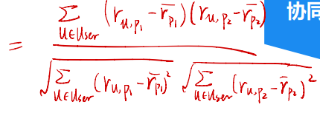 协同
= \frac{\sum_{u \in User} (r_{u,p_1} - \bar{r}_{p_1})(r_{u,p_2} - \bar{r}_{p_2})}{\sqrt{\sum_{u \in User} (r_{u,p_1} - \bar{r}_{p_1})^2} \sqrt{\sum_{u \in User} (r_{u,p_2} - \bar{r}_{p_2})^2}}